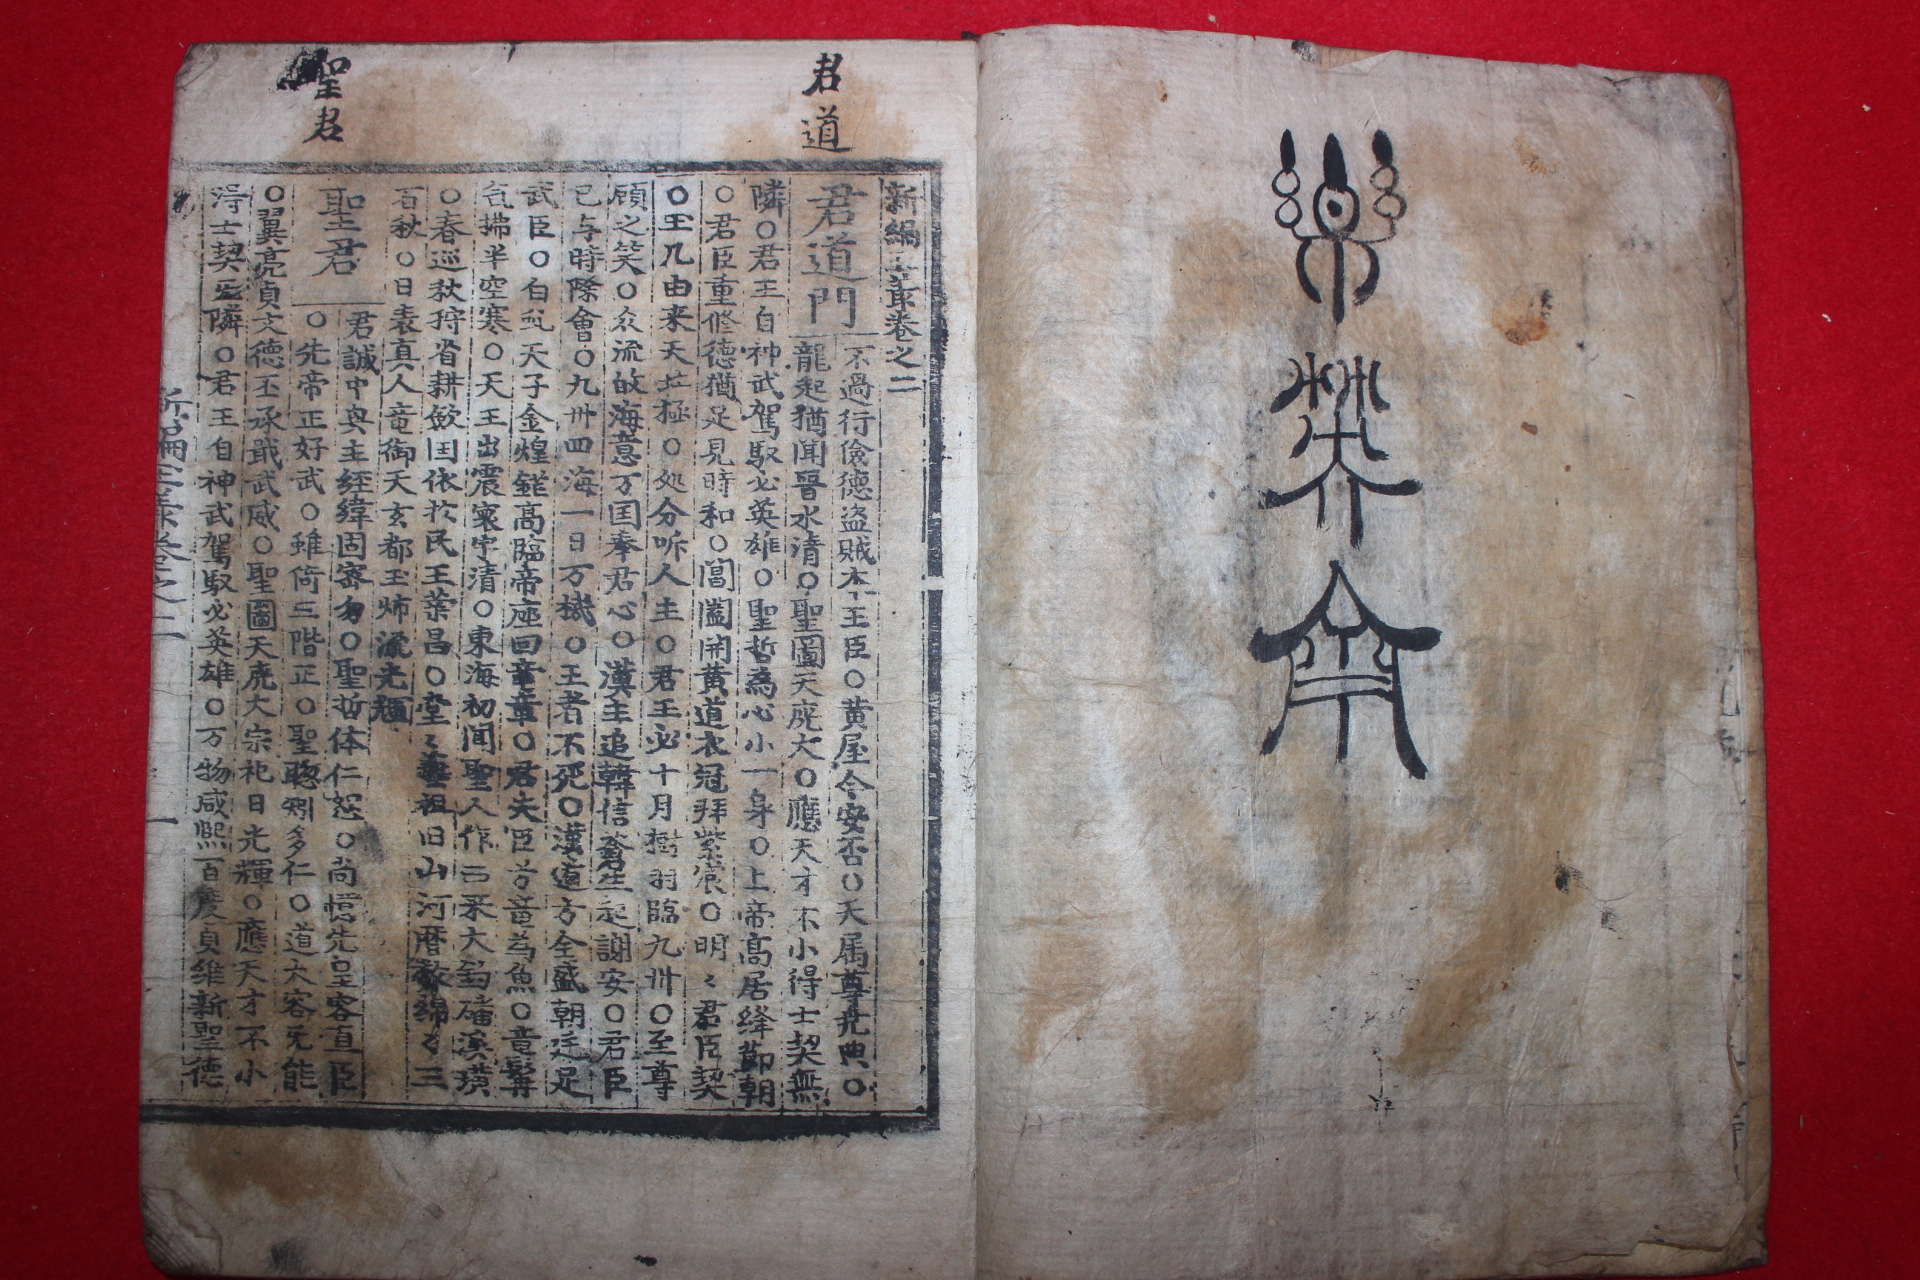 樂
君道
聖君
新編 卷之二
君道門
不過行儉德盜賊本王臣○黃屋今安否○天屬尊堯典○
龍起猶聞晉水清○聖圖天庞大○應天才不小得士契無
隣○君王自神武駕馭必英雄○聖哲為心小一身○上帝高居絳節朝
○君臣重修德猶足見時和○閶闔開黃道衣冠拜紫宸○明〻君臣契
○王几由来天北極○処分听人主○君王必十月樹羽臨九卅○至尊
顧之笑○众流故海意万囯奉君心○漢主追韓信蒼生起謝安○君臣
已与時際會○九卅四海一日万機○王者不死○漢道方全盛朝廷足
武臣○白 天子金煌 高臨帝座回 章○君失臣兮竜為魚○竜髯
拂半空寒○天王出震寰宇清○東海初聞聖人作 大钓磻溪璜
○春巡秋狩省耕斂囯依扵民王業昌○堂〻藝祖旧山河曆数綿〻三
百秋○日表真人竜御天玄都玉 流光
聖君
君誠中奥主經緯固密勿○聖哲体仁恕○尚憶先皇容直臣
○先帝正好武○雖倚三階正○聖聦 多仁○道大容无能
○翼亮貞文德丕承戢武威○聖圖天庞大宗祀日光輝○應天才不小
淂士契无隣○君王自神武駕馭必英雄○万物咸熙百度貞維新聖德
新編 卷之二
一